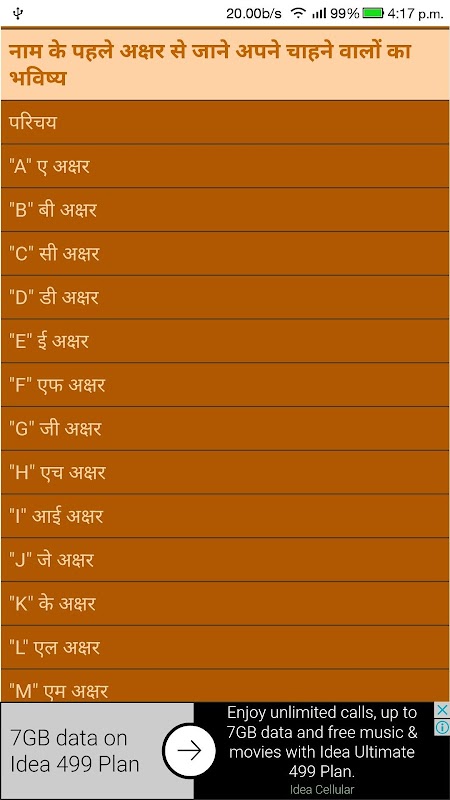 20.00b/s 99% 4:17 p.m.
नाम के पहले अक्षर से जाने अपने चाहने वालों का
भविष्य
परिचय
"A" ए अक्षर
"B" बी अक्षर
"C" सी अक्षर
"D" डी अक्षर
"E" ई अक्षर
"F" एफ अक्षर
"G" जी अक्षर
"H" एच अक्षर
"I" आई अक्षर
"J" जे अक्षर
"K" के अक्षर
"L" एल अक्षर
"M" एम अक्षर
7GB data on
Idea 499 Plan
Enjoy unlimited calls, up to
7GB data and free music &
movies with Idea Ultimate
499 Plan.
Idea Cellular